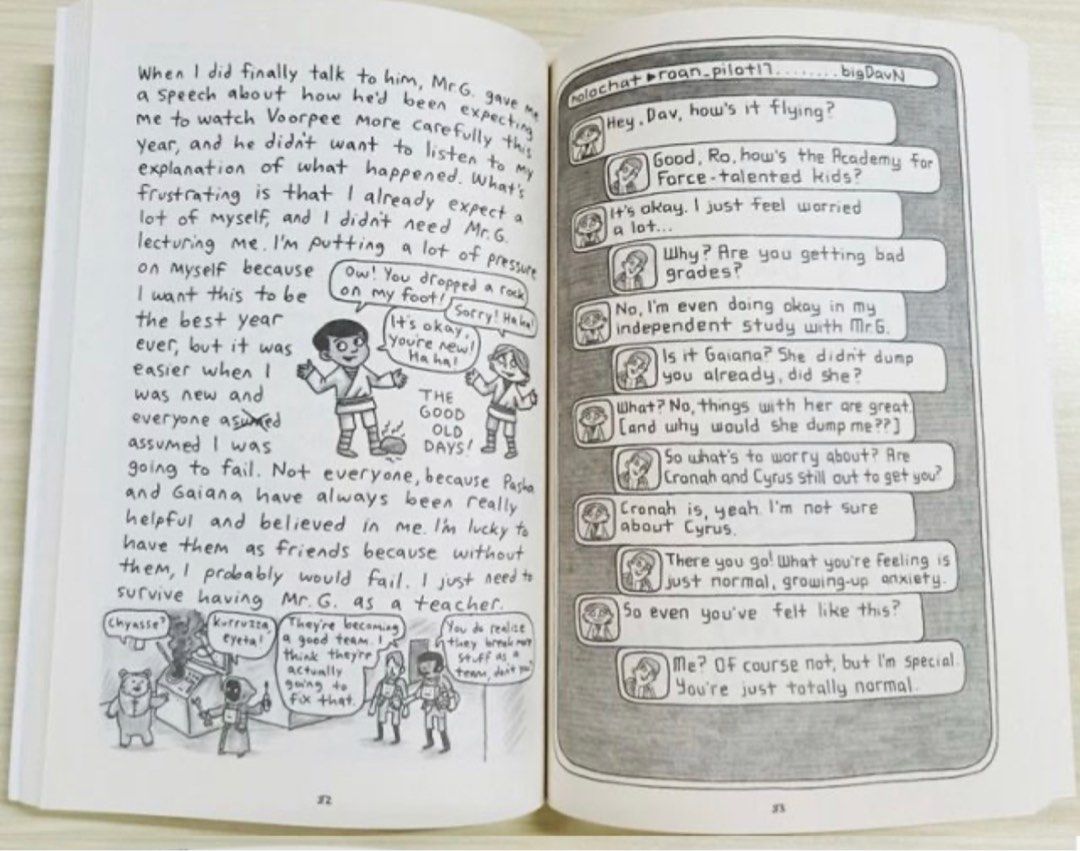 When I did finally talk to him, Mr.G. gave me
a speech about how he'd been expecting
me to watch Voorpee more carefully this
year, and he didn't want to listen to my
explanation of what happened. What's
frustrating is that I already expect a
lot of myself, and I didn't need Mr.G.
lecturing me. I'm putting a lot of pressure
on myself because
I want this to be
the best year
ever, but it was
easier when I
was new and
everyone
assumed I was
going to fail. Not everyone, because Pasha
and Gaiana have always been really
helpful and believed in me. I'm lucky to
have them as friends because without
them, I probably would fail. I just need to
survive having Mr.G. as a teacher.
Ow! You dropped a rock
on my foot!
Sorry! Ha ha!
It's okay,
you're new!
Ha ha!
THE
GOOD
OLD
DAYS!
Chyasse?
Kurruzza
eyeta!
They're becoming
a good team. I
think they're
actually
going to
fix that.
You do realize
they break more
stuff as a
team, don't you?
52
holochat ▸roan_pilot17........bigDavN
Hey, Dav, how's it flying?
Good, Ro, how's the Academy for
Force-talented kids?
It's okay. I just feel worried
a lot...
Why? Are you getting bad
grades?
No, I'm even doing okay in my
independent study with Mr.G.
Is it Gaiana? She didn't dump
you already, did she?
What? No, things with her are great.
[and why would she dump me??]
So what's to worry about? Are
Cronah and Cyrus still out to get you?
Cronah is, yeah. I'm not sure
about Cyrus.
There you go! What you're feeling is
just normal, growing-up anxiety.
So even you've felt like this?
Me? Of course not, but I'm special.
You're just totally normal.
53